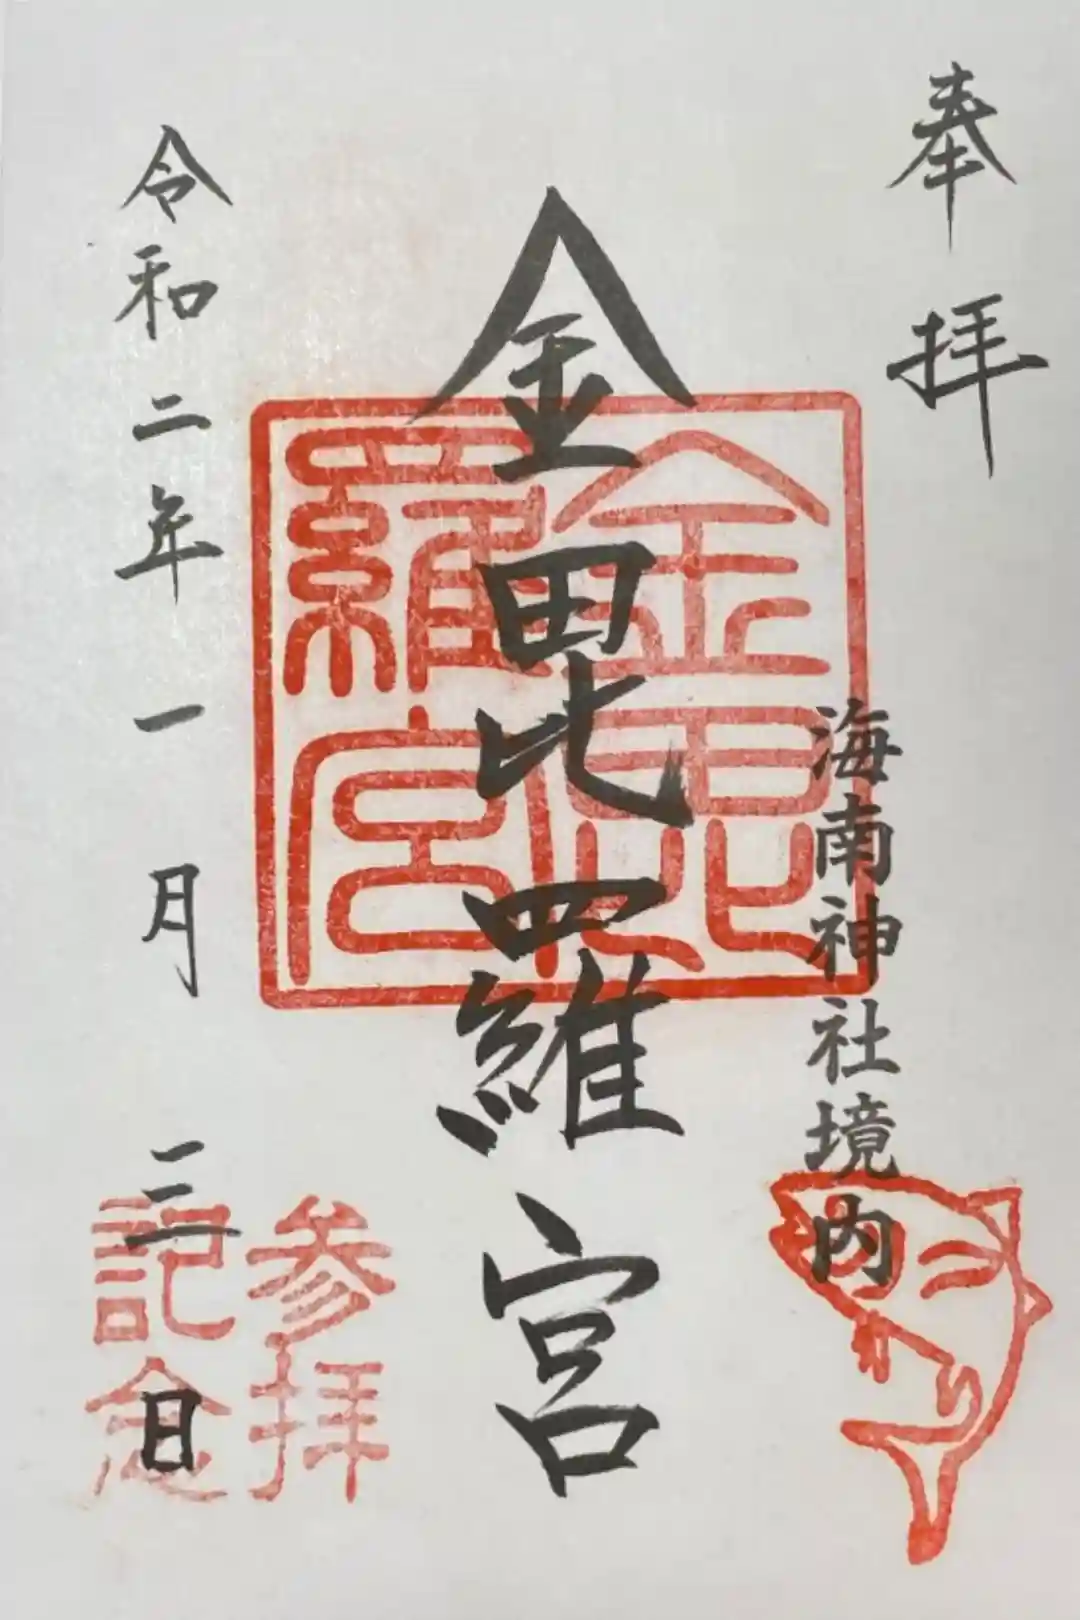 奉拝
海南神社境内
金毘羅宮
金毘
羅宮
参拝
記念
令和二年一月三日